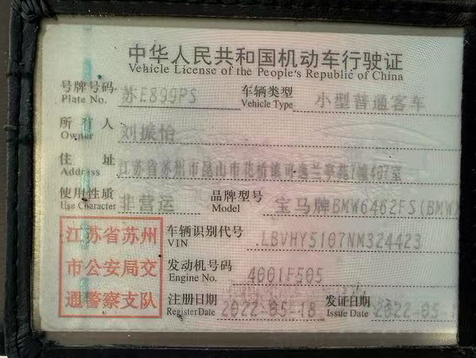 中华人民共和国机动车行驶证
Vehicle License of the People's Republic of China
号牌号码 Plate No. 苏E899PS 车辆类型 Vehicle Type 小型普通客车
所有人 Owner 刘振怡
住址 Address 江苏省苏州市昆山市花桥镇可逸兰亭苑7幢407室
使用性质 Use Character 非营运 品牌型号 Model 宝马牌BMW6462FS(BMW
江苏省苏州 车辆识别代号 VIN LBVHY5107NM324423
市公安局交 发动机号码 Engine No. 4001F505
通警察支队 注册日期 Register Date 2022-05-18 发证日期 Issue Date 2022-05